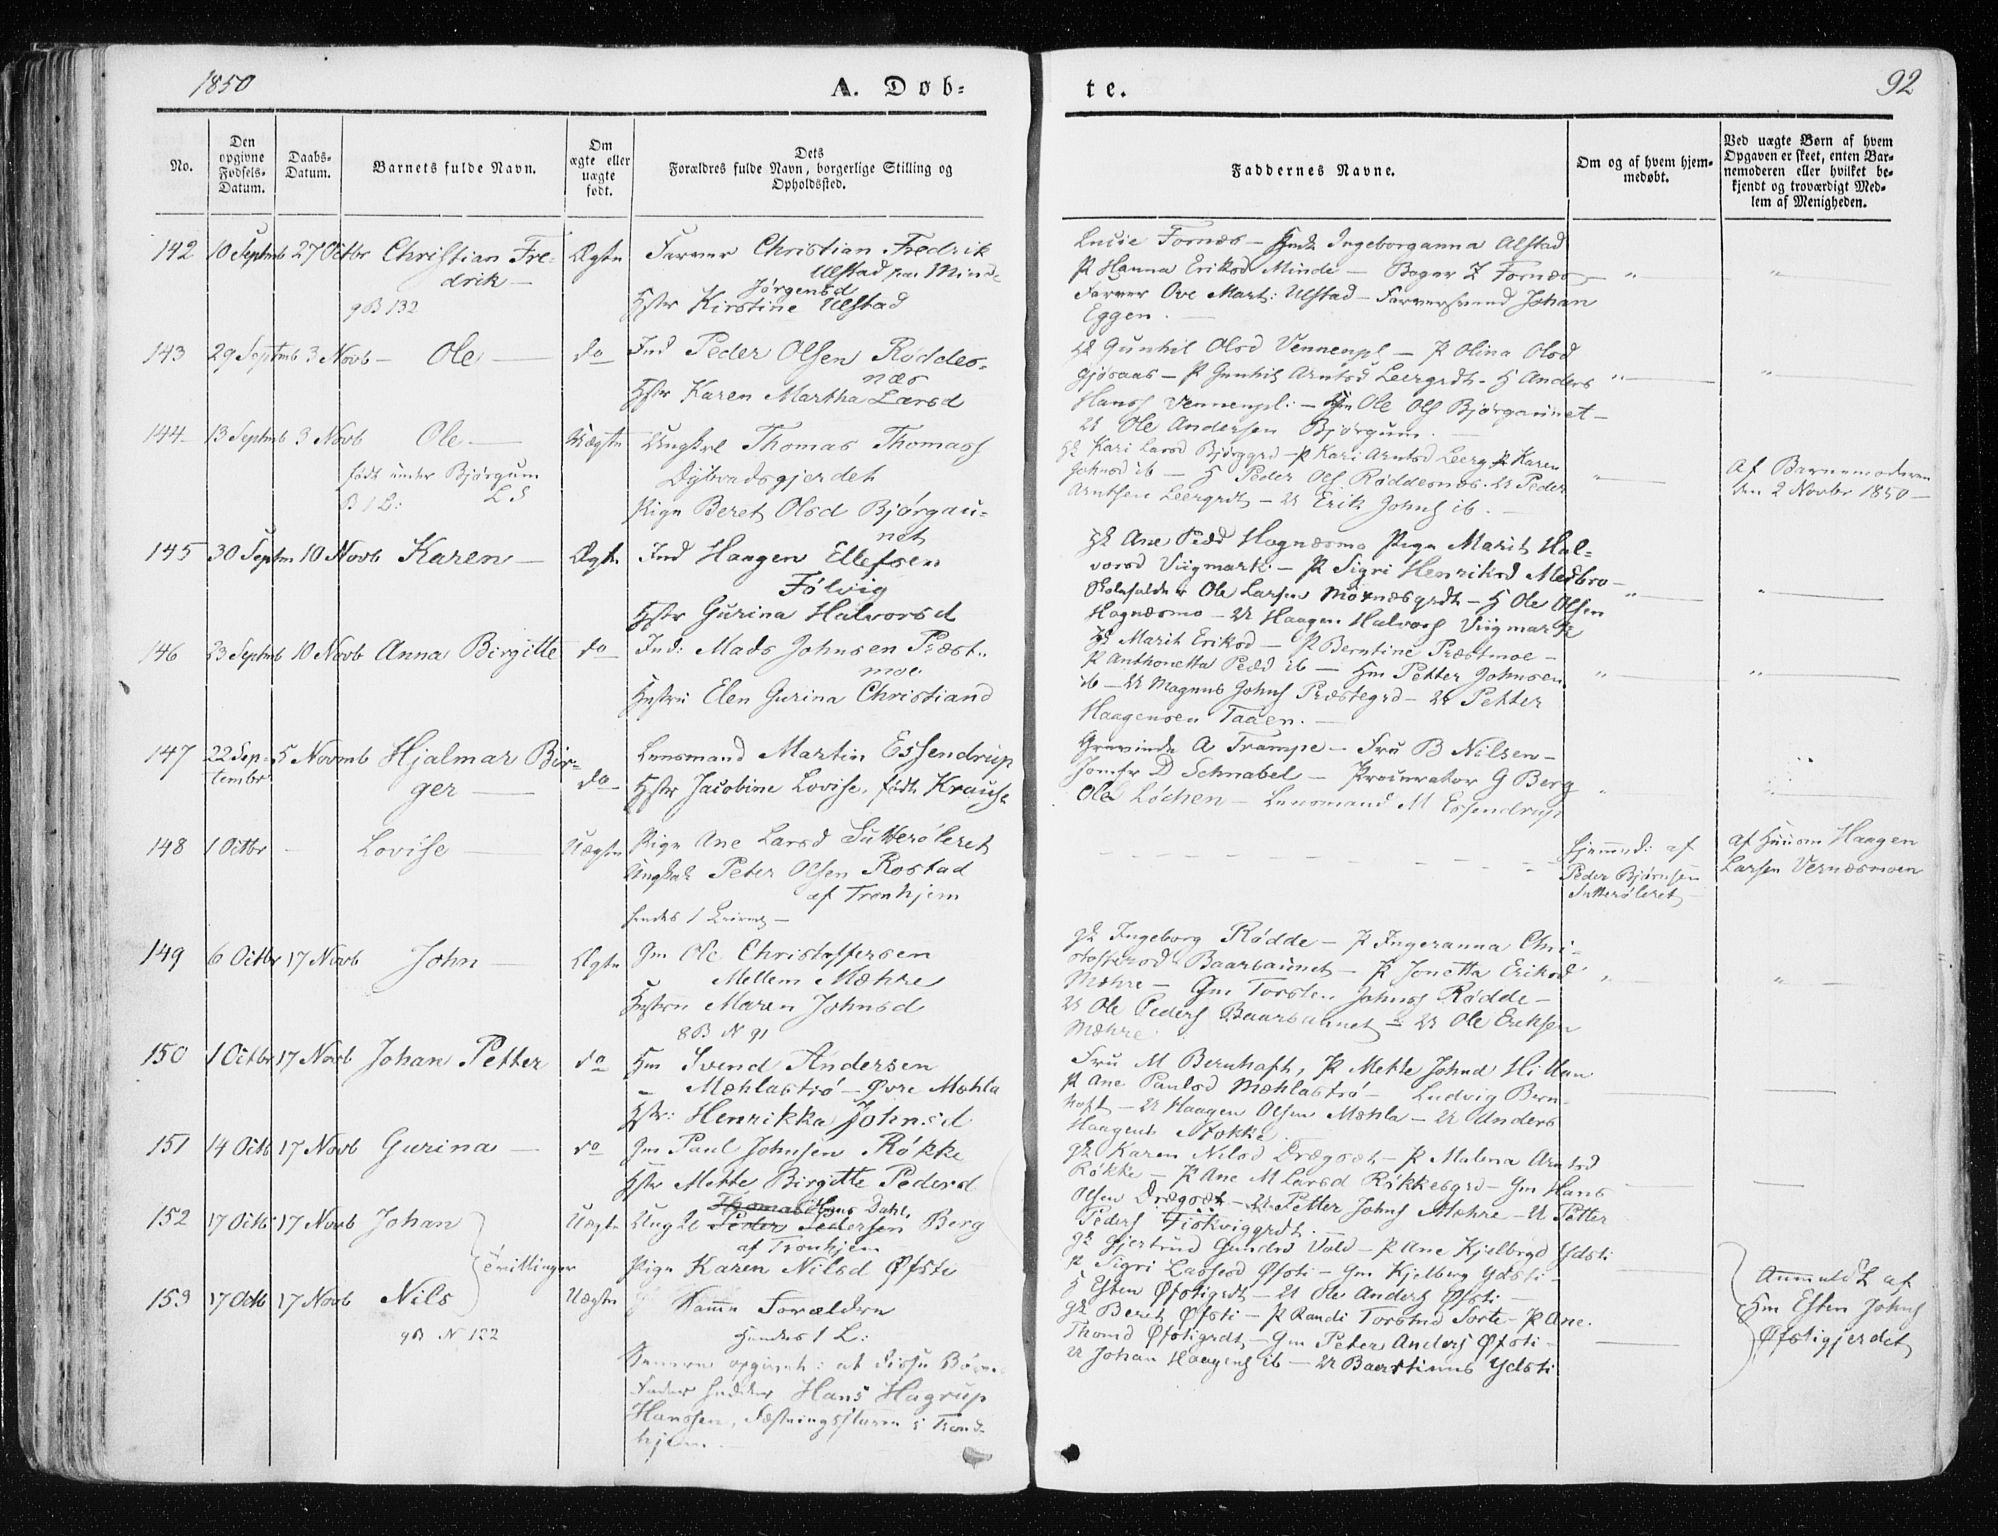 1850
A. Døb-
te.
92
No.
Den opgivne Fødsels-Datum.
Daabs-Datum.
Barnets fulde Navn.
Om ægte eller uægte født.
Dets Forældres fulde Navn, borgerlige Stilling og Opholdssted.
Faddernes Navne.
Om og af hvem hjem-
medøbt.
Ved uægte Børn af hvem
Opgaven er skeet, enten Bar-
nemoderen eller hvilket be-
kjendt og troværdigt Med-
lem af Menigheden.
142 10 Septmb 27 Octbr Christian Fre-
drik
gB 132
Ægte
Farver Christian Fredrik
Ulstad
Jørgensd
Hstr Kirstine Ulstad
Lucie Fornæs - Ingeborganna Ulstad
P Hanna Eriksd Minde - Bager Z Fornæs
Farver Ove Mart: Ulstad - Farversvend Johan
Eggen.
143 29 Septmb 3 Novb Ole do
Ind Peder Olsen Røddes-
næs
Hstr Karen Martha Larsd
Gunhil Olsd Vennenpl - P Olina Olsd
Gjøsaas - P Gunhil Arntsd Leergrdt - H Anders
Hanss Vennenpl: - Ole Ols Bjørgaunet -
Ole Andersen Bjørgum.
144 13 Septmb 3 Novb Ole Uægte
født under Bjørgum
Ungkrl Thomas Thomass
Dybvadsgjerdet
Pige Beret Olsd Bjørgau-
net
Kari Larsd Bjørggrd - P Kari Arntsd Leerg P Karen
Johnsd ib - H Peder Ols Røddesnæs. U Peder
Arntsen Leergrdt - U Erik Johns ib.
Af Barnemoderen
den 2 Novbr 1850
145 30 Septm 10 Novb Karen Ægte
Ind Haagen Ellefsen
Følvig
Hstr Gurina Halvorsd
Ane Pedd Hognæsmo Pige Marit Hal-
vorsd Viigmark - P Sigri Henriksd Medbro -
Ole Larsen Moxnæsgrdt - H Ole Olsen
Hognæsmo - U Haagen Halvors Viigmark
146 23 Septmb 10 Novb Anna Birgitte do
Ind: Mads Johnsen Præst-
moe
Hustru Elen Gurina Christiand
Marit Eriksd - P Berntine Præstmoe -
P Anthonetta Pedd ib - Hm Petter Johnsen
ib - U Magnus Johns Præstegrd - U Petter
Haagensen Taaen.
147 22 Sep-
tembr
5 Novmb Hjalmar Bir-
ger
do
Lensmand Martin Essendrup
Hstr Jacobine Lovise, født Krause
Grevinde A Trampe - Fru B Nilsen -
Jomfr D Schnabel - Procurator G Berg
Ole Løchen - Lensmand M Essendrup
148 1 Octbr - Lovise Uægte
Pige Ane Larsd Sutterøleret
Ungkrl Peter Olsen Rostad
af Tronhjem
hendes 1 Leierm -
Hjemmd: af
Peder Bjørnsen
Sutterøleret
af Huusm Haagen
Larsen Vernæsmoen
149 6 Octbr 17 Novb John Ægte
Gm Ole Christoffersen
Mellem Mæhre
Hustru Maren Johnsd
8B N 91
Ingeborg Rødde - P Ingeranna Chri-
stofersd Baarsaunet - P Jonetta Eriksd
Mæhre - Gm Torsten Johns Rødde -
U Ole Peders Baarsaunet - U Ole Eriksen
Mæhre.
150 1 Octbr 17 Novb Johan Petter do
Hm Svend Andersen
Mæhlastrø - Øvre Mæhla
Hstr: Henrikka Johnsd
Fru M Bernhoft, P Mette Johnsd Hillan
P Ane Paulsd Mæhlastrø - Ludvig Bern-
hoft - U Haagen Olsen Mæhla - U Anders
Haagens Stokke.
151 14 Octb 17 Novb Gurina do
Gm Paul Johnsen Røkke
Hstr Mette Birgitte Pedersd
Karen Nilsd Drægset - P Malena Arntsd
Røkke - P Ane M Larsd Røkkesgrd - Gm Hans
Olsen Drægset - U Petter Johns Mæhre - U Petter
Peders Fiskviggrdt.
152 17 Octb 17 Novb Johan Uægte
Thomas Hans Dahl,
Ungk Peder Pedersen Berg
af Tronhjem
Pige Karen Nilsd Øfsti
Tvillinger
Gjertrud Gundsd Vold - P Ane Kjelbrgd Ydsti
P Sigri Lassesd Øfsti - Gm Kjelberg Ydsti -
H Esten Øfstigrdt - U Ole Anders Øfsti -
153 17 Octb 17 Novb Nils Uægte
gB N 122
Samme Forældre
Hendes 1 L:
Senere opgivet: at disse Børns
Fader hedder Hans Hagrup
Hanssen, Fæstningsslaven i Trond-
hjem.
Beret Øfsti - P Randi Torstnsd Sorte - P Ane
Thomd Øfstigrdt - Gm Peter Anders Øfsti -
U Johan Haagens ib - U Baerstinus Ydsti
Anmeldt af
Hm Esten Johns
Øfstigjerdet